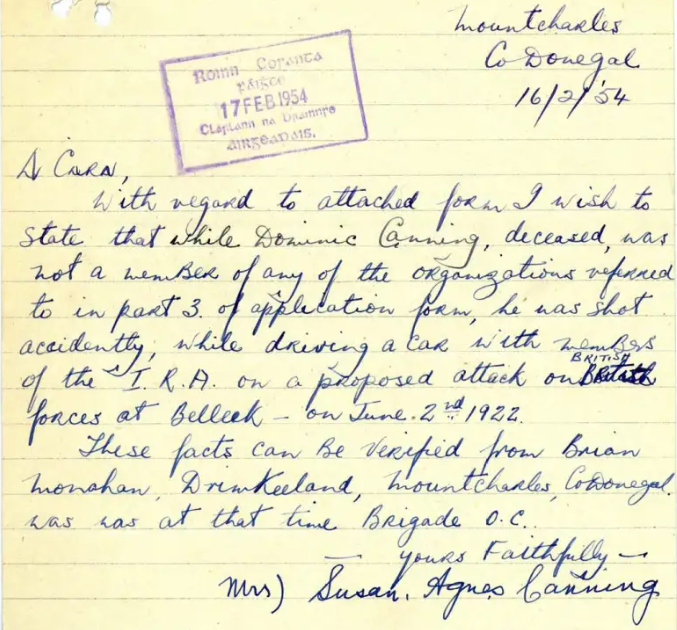 Mountcharles
Co Donegal
16/2/'54
Roinn Cosanta
17 FEB 1954
Airgeadais.
A Cara,
With regard to attached form I wish to
state that while Dominic Canning, deceased, was
not a member of any of the organizations referred
to in part 3. of application form, he was shot
accidently, while driving a car with members
of the I.R.A. on a proposed attack on BRITISH
forces at Belleek – on June. 2nd 1922.
These facts can be verified from Brian
Monahan, Drimkeeland, Mountcharles, Co Donegal.
was was at that time Brigade O.C..
Yours Faithfully –
Mrs) Susan. Agnes Canning